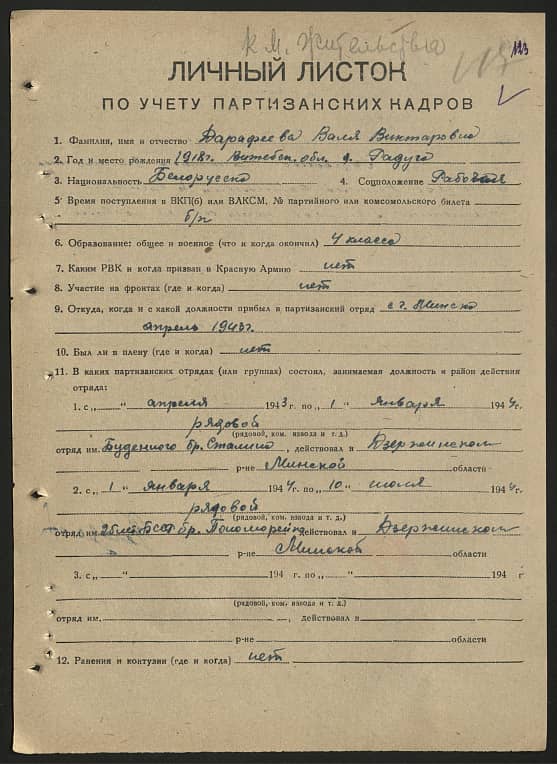 к м. жительства
123
ЛИЧНЫЙ ЛИСТОК
ПО УЧЕТУ ПАРТИЗАНСКИХ КАДРОВ
1. Фамилия, имя и отчество Дарафеева Валя Викторовна
2. Год и место рождения 1918г. Витебск. обл. д. Радуга
3. Национальность Белорусска 4. Соцположение Рабочая
5. Время поступления в ВКП(б) или ВЛКСМ, № партийного или комсомольского билета
б/п
6. Образование: общее и военное (что и когда окончил) 4 класса
7. Каким РВК и когда призван в Красную Армию нет
8. Участие на фронтах (где и когда) нет
9. Откуда, когда и с какой должности прибыл в партизанский отряд с г. Минска
апрель 1943г.
10. Был ли в плену (где и когда) нет
11. В каких партизанских отрядах (или группах) состоял, занимаемая должность и район действия
отряда:
1. с „ “ апреля 1943 г. по „1“ января 1944г.
рядовой
(рядовой, ком. взвода и т. д.)
отряд им. Буденного бр. Сталина, действовал в Дзержинском
р-не Минской области
2. с „1“ января 1944 г. по „10“ июля 1944г.
рядовой
(рядовой, ком. взвода и т. д.)
отряд им. 25 лет БССР бр. Пономаренко действовал в Дзержинском
р-не Минской области
3. с „ “ 194 г. по „ “ 194 г.
(рядовой, ком. взвода и т. д.)
отряд им. , действовал в
р-не области
12. Ранения и контузии (где и когда) нет